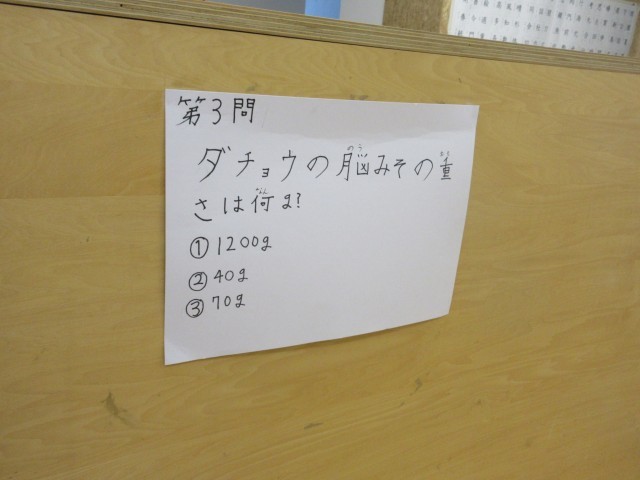 第3問
ダチョウの脳みその重
さは荷g?
①1200g
②40g
③70g